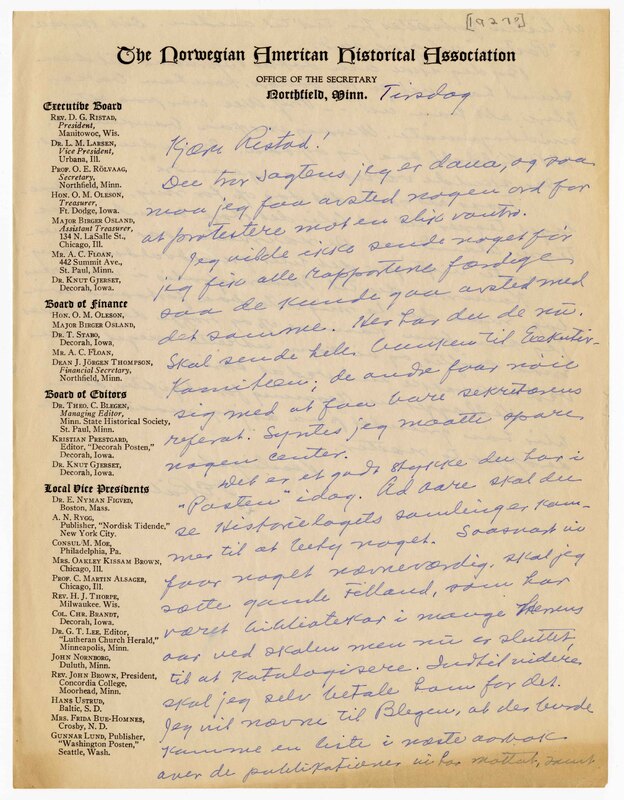 [192?]
The Norwegian American Historical Association
OFFICE OF THE SECRETARY
Northfield, Minn. Tirsdag
Executive Board
REV. D. G. RISTAD,
President,
Manitowoc, Wis.
DR. L. M. LARSEN,
Vice President,
Urbana, Ill.
PROF. O. E. RÖLVAAG,
Secretary,
Northfield, Minn.
HON. O. M. OLESON,
Treasurer,
Ft. Dodge, Iowa.
MAJOR BIRGER OSLAND,
Assistant Treasurer,
134 N. LaSalle St.,
Chicago, Ill.
MR. A. C. FLOAN,
442 Summit Ave.,
St. Paul, Minn.
DR. KNUT GJERSET,
Decorah, Iowa.
Board of Finance
HON. O. M. OLESON,
MAJOR BIRGER OSLAND,
DR. T. STABO,
Decorah, Iowa.
MR. A. C. FLOAN,
DEAN J. JÖRGEN THOMPSON,
Financial Secretary,
Northfield, Minn.
Board of Editors
DR. THEO. C. BLEGEN,
Managing Editor,
Minn. State Historical Society,
St. Paul, Minn.
KRISTIAN PRESTGARD,
Editor, "Decorah Posten,"
Decorah, Iowa.
DR. KNUT GJERSET,
Decorah, Iowa.
Local Vice Presidents
DR. E. NYMAN FIGVED,
Boston, Mass.
A. N. RYGG,
Publisher, "Nordisk Tidende,"
New York City.
CONSUL M. MOE,
Philadelphia, Pa.
MRS. OAKLEY KISSAM BROWN,
Chicago, Ill.
PROF. C. MARTIN ALSAGER,
Chicago, Ill.
REV. H. J. THORPE,
Milwaukee. Wis.
COL. CHR. BRANDT,
Decorah, Iowa.
DR. G. T. LEE, Editor,
"Lutheran Church Herald,"
Minneapolis, Minn.
JOHN NORNBORG,
Duluth, Minn.
REV. JOHN BROWN, President,
Concordia College,
Moorhead, Minn.
HANS USTRUD,
Baltic, S. D.
MRS. FRIDA BUE-HOMNES,
Crosby, N. D.
GUNNAR LUND, Publisher,
"Washington Posten,"
Seattle, Wash.
Kjære Ristad!
Du tror sagtens jeg er daua, og saa
maa jeg faa avsted nogen ord for
at protestere mot en slik vantro.
Jeg vilde ikke sende noget før
jeg fik alle rapportene færdige
saa de kunde gaa avsted med
det samme. Her har du de nu.
Skal sende hele bunken til Exekutiv-
Komiteen; de andre faar nøie
sig med at faa bare sekretærens
referat. Syntes jeg maatte spare
nogen center.
Det er et godt stykke du har i
"Posten" idag. Aa bare skal du
se Historielagets samlinger kom-
mer til at bety noget. Saasnart vi
faar noget nævneværdig, skal jeg
sætte gamle Felland, som har
været bibliotekar i mange Herrens
aar ved skolen men nu er sluttet,
til at katalogisere. Indtil videre
skal jeg selv betale ham for det.
Jeg vil nævne til Blegen, at der burde
komme en liste i næste aarbok
over de publikationer vi har mottat, samt